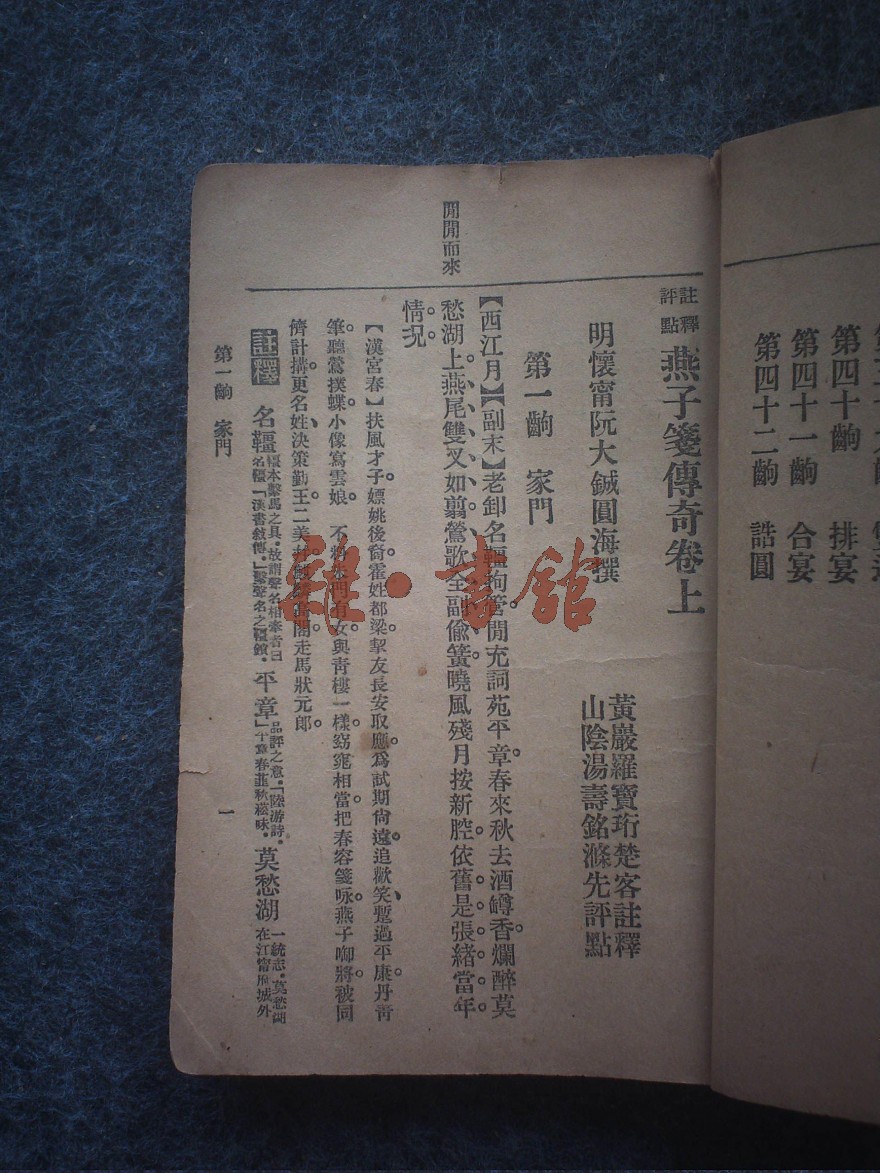 第四十齣 排宴
第四十一齣 合宴
第四十二齣 誥圓
註釋
評點
燕子箋傳奇卷上
明懷甯阮大鋮圓海撰
黃巖羅寶珩楚客註釋
山陰湯壽銘滌先評點
第一齣 家門
閒閒而來
【西江月】【副末】老卸名韁拘管。閒充詞苑平章。春來秋去酒罇香。爛醉莫
愁湖上。燕尾雙叉如翦。鶯歌全副偷簧。曉風殘月按新腔。依舊是張緒當年
情況。
【漢宮春】扶風才子。嫖姚後裔。霍姓都梁。挈友長安取應。爲試期尙遠。追歡笑、蹔過平康。丹靑
筆。聽鶯撲蝶。小像寫雲娘。 不料朱門有女。與靑樓一樣。窈窕相當。把春容箋咏。燕子啣將。被同
儕計搆。更名姓、決策勤王。二美
閣。走馬狀元郎。
註釋 名韁 韁本繫馬之具。故謂聲名相牽者曰
名韁。「漢書敘傳。」繫聲名之韁鎖。 平章 品評之意。「陸游詩。」
平章春韭秋菘味。 莫愁湖 一統志。莫愁湖
在江甯府城外
第一齣 家門
一
雜·書館